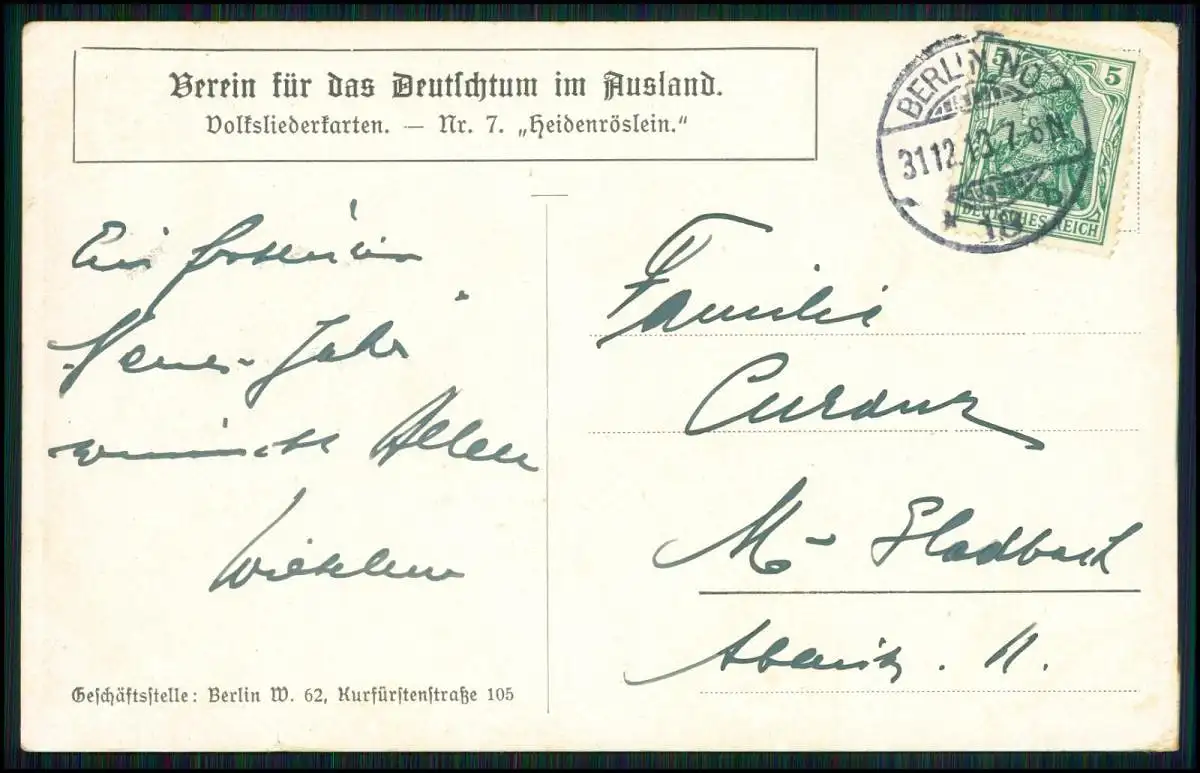 Verein für das Deutschtum im Ausland.
Volksliederkarten. — Nr. 7. „Heidenröslein."
BERLIN NO
31.12.13.7-8N
* 18
5 5
DEUTSCHES REICH
Ein
Neues Jahr
wünscht Allen
Familie
M-Gladbach
Geschäftsstelle: Berlin W. 62, Kurfürstenstraße 105